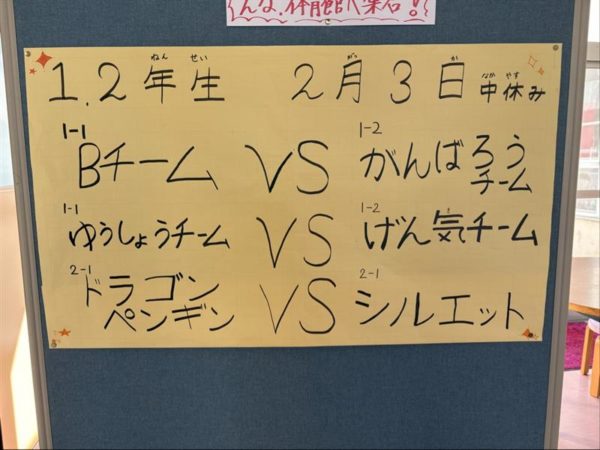 んな、体育館へ集合!
ねん せい がつ か なか やす
1.2年生 2月3日 中休み
1-1 1-2
Bチーム VS がんばろうチーム
1-1 1-2
ゆうしょうチーム VS げん気チーム
2-1 2-1
ドラゴン
ペンギン VS シルエット